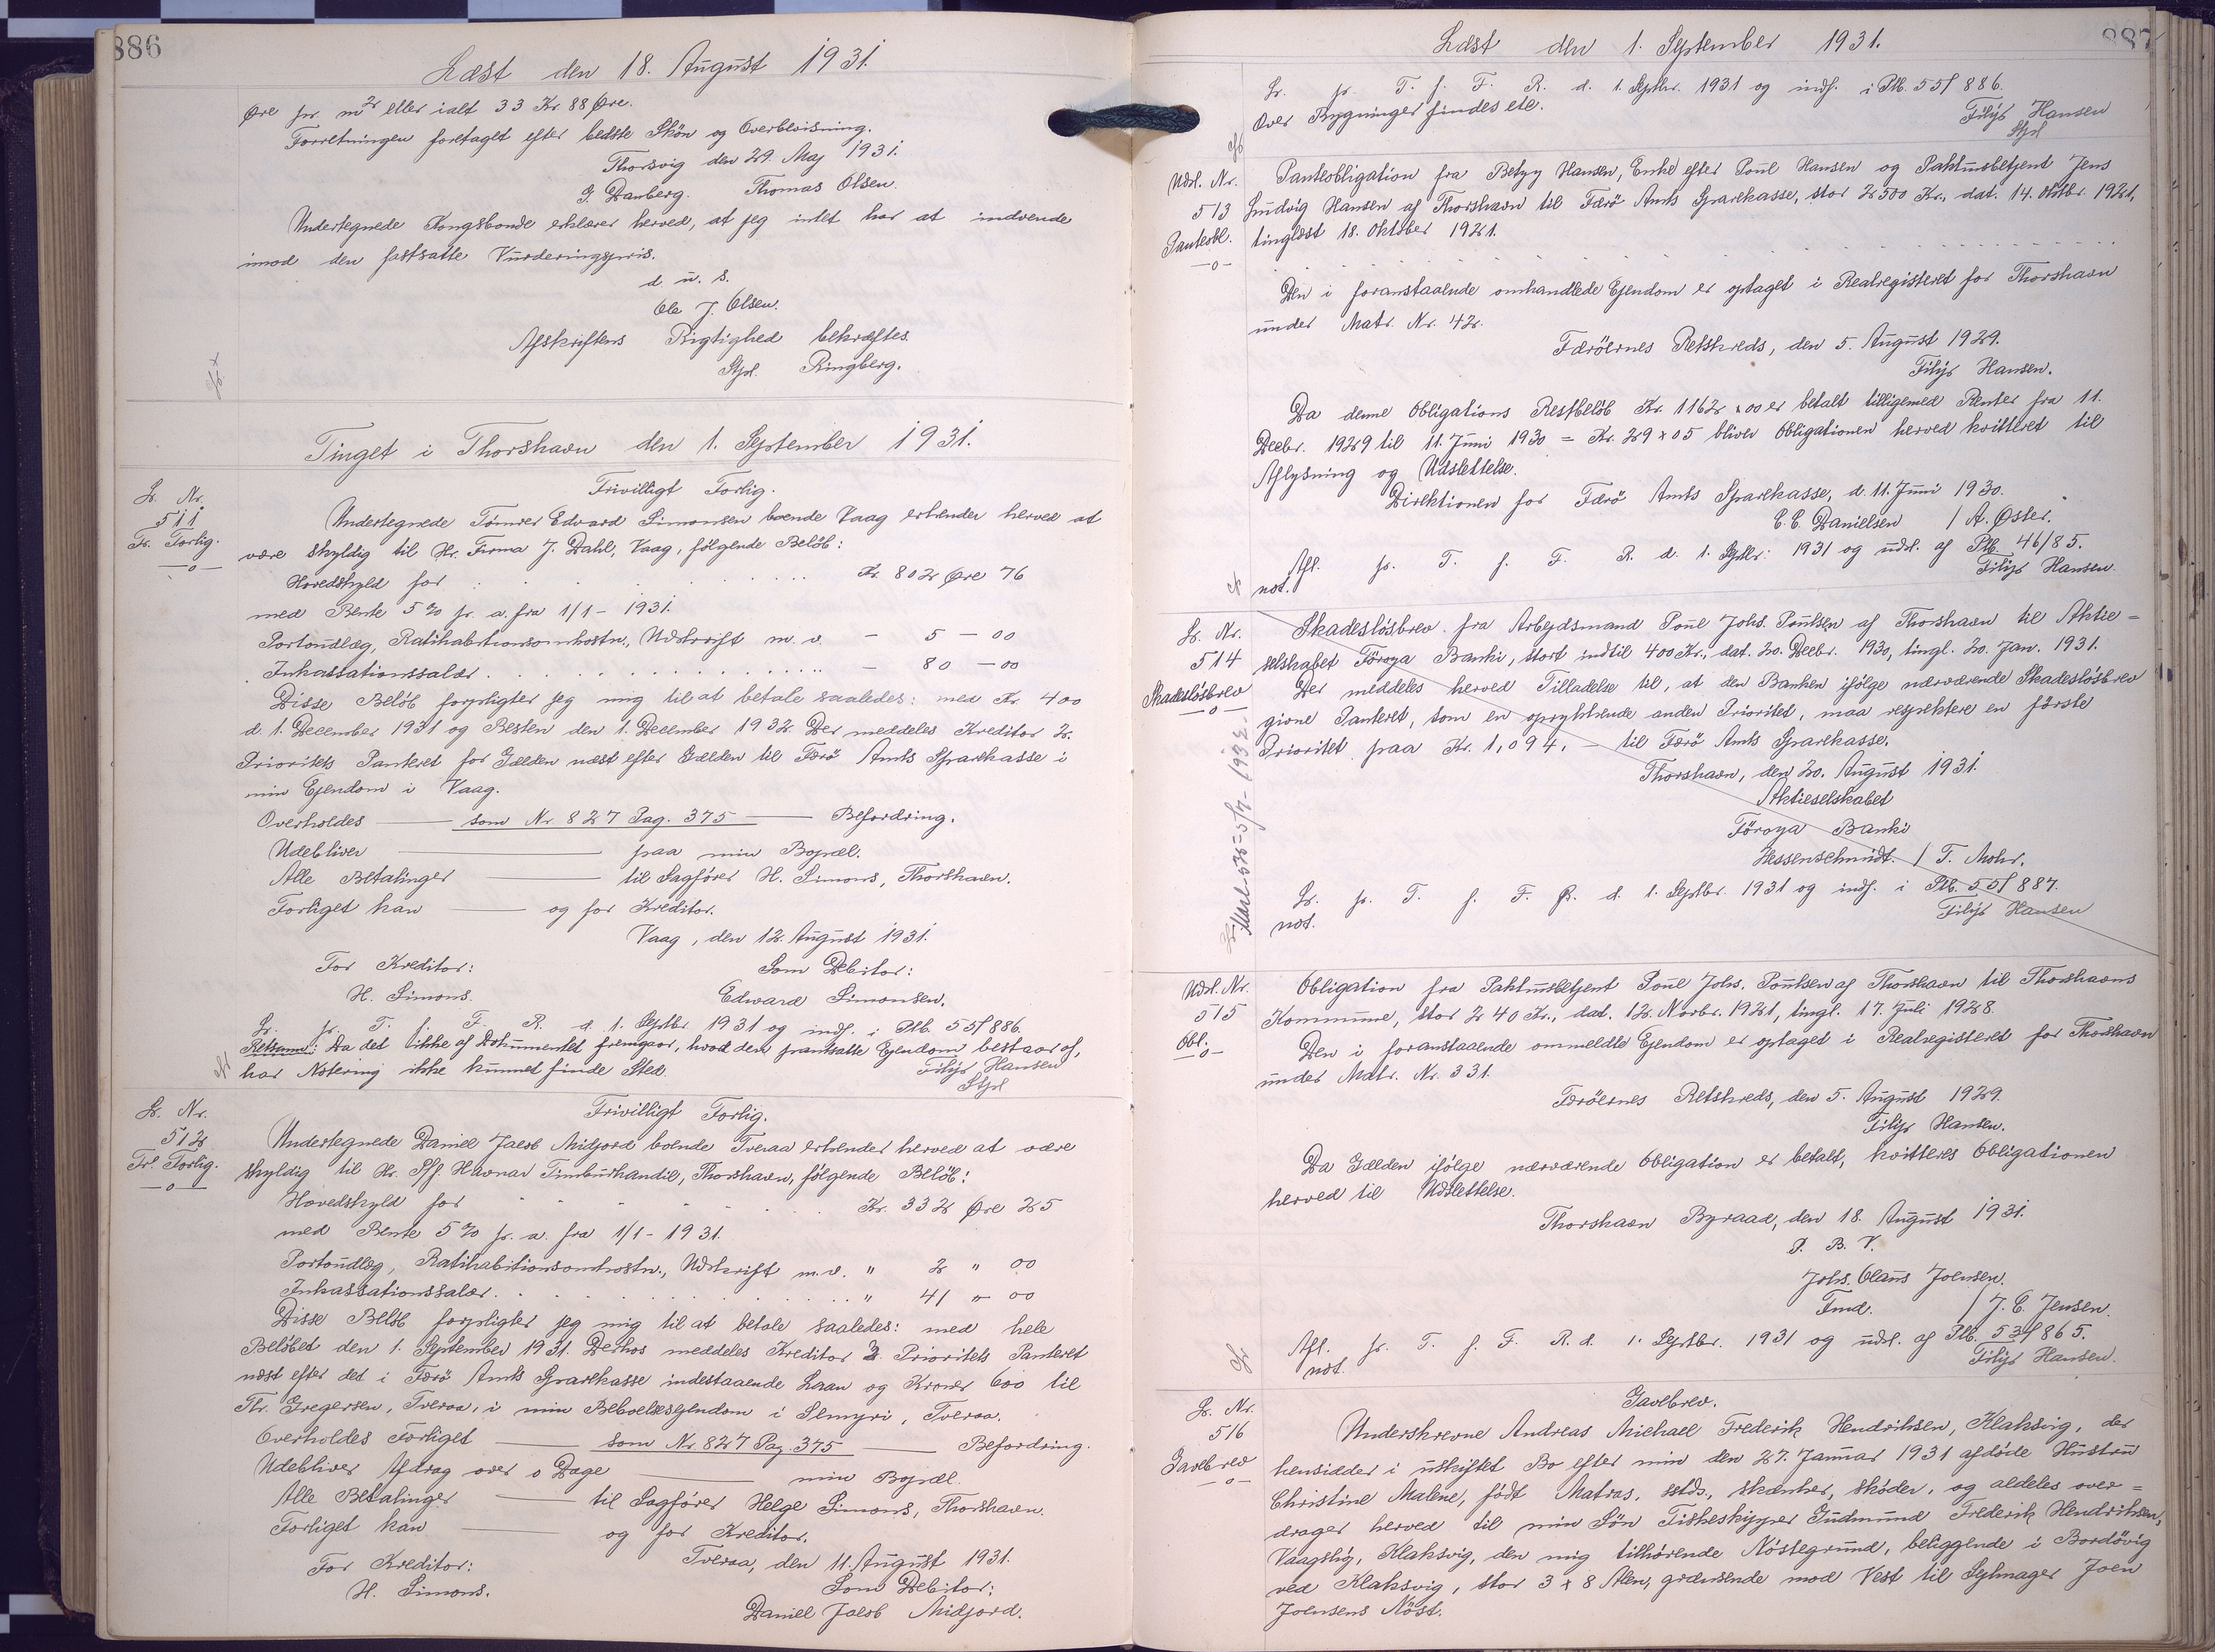 886
Læst den 18. August 1931.
Øre pr. m2 eller ialt 33 Kr. 88 Øre.
Forretningen foretaget efter bedste Skön og Overbevisning.
Thorsvig den 29. Maj 1931.
J. Danberg. Thomas Olsen.
Undertegnede Kongsbonde erklærer herved, at jeg intet har at indvende
imod den fastsatte Vurderingspris.
d. u. s.
Ole J. Olsen.
Afskriftens Rigtighed bekræftes.
Stpl. Ringberg.
Tinget i Thorshavn den 1. September 1931.
L. Nr.
511
Fr. Forlig.
Frivilligt Forlig.
Undertegnede Tömrer Edvard Simonsen boende Vaag erkender herved at
være skyldig til Hr. Firma J. Dahl, Vaag, fölgende Belöb:
Hovedskyld for Kr. 802 Øre 76
med Rente 5 % pr. a. fra 1/1 - 1931.
Portoudlæg, Ratihabitionsomkostn., Udskrift m. v. - 5 - 00
Inkassationssalær. - 80 - 00
Disse Belöb forpligter jeg mig til at betale saaledes: med Kr. 400
d. 1. December 1931 og Resten den 1. December 1932. Der meddeles Kreditor 2.
Prioritets Panteret for Gælden næst efter Gælden til Færö Amts Sparekasse i
min Ejendom i Vaag.
Overholdes — som Nr. 827 Pag. 375 — Befordring.
Udebliver — paa min Bopæl.
Alle Betalinger — til Sagförer H. Simons, Thorshavn.
Forliget kan — og for Kreditor.
Vaag, den 12. August 1931.
For Kreditor: Som Debitor:
H. Simons. Edward Simonsen.
L. pr. T. f. F. R. d. 1. Septbr 1931 og indf. i Ptb. 55/886.
Retsanm: Da det ikke af Dokumentet fremgaar, hvad den pantsatte Ejendom bestaar af,
har Notering ikke kunnet finde Sted. Filip Hansen
Stpl
L. Nr.
512
Fr. Forlig.
Frivilligt Forlig.
Undertegnede Daniel Jacob Midjord boende Tveraa erkender herved at være
skyldig til Hr. Sff Havnar Timburhandil, Thorshavn, fölgende Belöb:
Hovedskyld for Kr. 332 Øre 25
med Rente 5 % pr. a. fra 1/1 - 1931.
Portoudlæg, Ratihabitionsomkostn., Udskrift m. v. " 2 " 00
Inkassationssalær. " 41 " 00
Disse Belöb forpligter jeg mig til at betale saaledes: med hele
Belöbet den 1. September 1931. Derhos meddeles Kreditor 3. Prioritets Panteret
næst efter det i Færö Amts Sparekasse indestaaende Laan og Kroner 600 til
Th. Gregersen, Tveraa, i min Beboelsesejendom i Slmyri, Tveraa.
Overholdes Forliget — som Nr. 827 Pag. 375 — Befordring.
Udebliver Afdrag over 0 Dage — min Bopæl.
Alle Betalinger — til Sagförer Helge Simons, Thorshavn.
Forliget kan — og for Kreditor.
Tveraa, den 11. August 1931.
For Kreditor: Som Debitor:
H. Simons. Daniel Jacob Midjord.
887
Læst den 1. September 1931.
L. pr. T. f. F. R. d. 1. Septbr. 1931 og indf. i Ptb. 55/886.
Over Bygninger findes ete. Filip Hansen
Stpl
Udsl. Nr.
513
Panteobl.
Panteobligation fra Betzy Hansen, Enke efter Poul Hansen og Pakhusbetjent Jens
Ludvig Hansen af Thorshavn til Færö Amts Sparekasse, stor 2500 Kr., dat. 14. Oktbr. 1921,
tinglæst 18. Oktober 1921.
Den i foranstaaende omhandlede Ejendom er optaget i Realregisteret for Thorshavn
under Matr. Nr. 42.
Færöernes Retskreds, den 5. August 1929.
Filip Hansen.
Da denne Obligations Restbelöb Kr. 1162 x 00 er betalt tilligemed Renter fra 11.
Decbr. 1929 til 11. Juni 1930 = Kr. 29 x 05 bliver Obligationen herved kvitteret til
Aflysning og Udslettelse.
Direktionen for Færö Amts Sparekasse, d. 11. Juni 1930.
C. C. Danielsen / A. Øster.
Afl. pr. T. f. F. R. d. 1. Septbr. 1931 og udsl. af Ptb. 46/85.
not. Filip Hansen.
L. Nr.
514
Skadeslösbrev
Skadeslösbrev fra Arbejdsmand Poul Johs. Poulsen af Thorshavn til Aktie=
selskabet Föroya Banki, stort indtil 400 Kr., dat. 20. Decbr. 1930, tingl. 20. Jan. 1931.
Der meddeles herved Tilladelse til, at den Banken ifölge nærværende Skadeslösbrev
givne Panteret, som en oprykkende anden Prioritet, maa respektere en förste
Prioritet paa Kr. 1,094,- til Færö Amts Sparekasse.
Thorshavn, den 20. August 1931.
Aktieselskabet
Föroya Banki
Hessenschmidt. / T. Mohr.
L. pr. T. f. F. R. d. 1. Septbr. 1931 og indf. i Ptb. 55/887.
not. Filip Hansen
Udsl. Nr.
515
Obl.
Obligation fra Pakhusbetjent Poul Johs. Poulsen af Thorshavn til Thorshavns
Kommune, stor 240 Kr., dat. 12. Novbr. 1921, tingl. 17. Juli 1928.
Den i foranstaaende ommeldte Ejendom er optaget i Realregisteret for Thorshavn
under Matr. Nr. 331.
Færöernes Retskreds, den 5. August 1929.
Filip Hansen.
Da Gælden ifölge nærværende Obligation er betalt, kvitteres Obligationen
herved til Udslettelse.
Thorshavn Byraad, den 18. August 1931.
P. B. V.
Johs. Olaus Joensen.
Fmd. / J. C. Jensen.
Afl. pr. T. f. F. R. d. 1. Septbr. 1931 og udsl. af Ptb. 53/865.
not. Filip Hansen.
L. Nr.
516
Gavebrev
Gavebrev.
Underskrevne Andreas Michael Frederik Hendriksen, Klaksvig, der
hensidder i uskiftet Bo efter min den 27. Januar 1931 afdöde Hustru
Christine Malene, födt Matras, sælds., skænker, sköder, og aldeles over=
drager herved til min Sön Fiskeskipper Gudmund Frederik Hendriksen,
Vaagslig, Klaksvig, den mig tilhörende Nöstegrund, beliggende i Bordövig
ved Klaksvig, stor 3 x 8 Alen, grænsende mod Vest til Sejlmager Joen
Joensens Nöst.